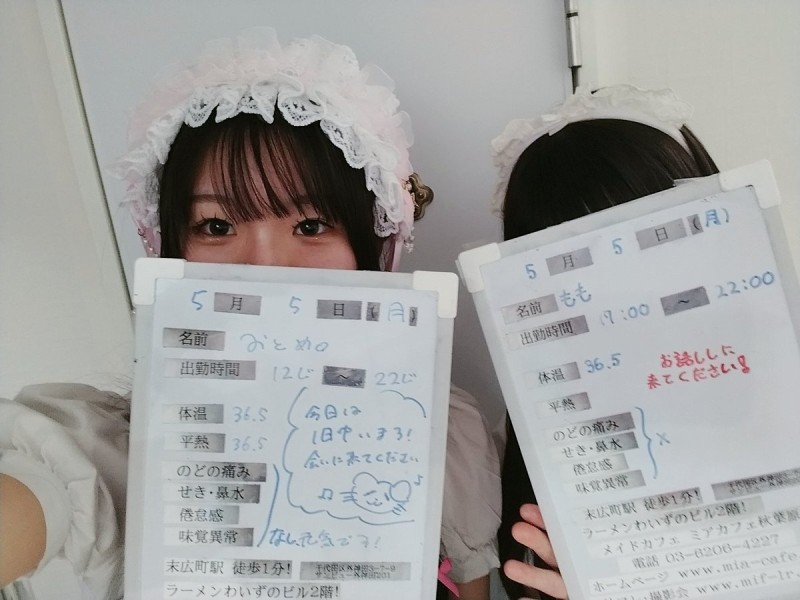 5 月 5 日 (月)
名前 おとめ
出勤時間 12じ ~ 22じ
体温 36.5
平熱 36.5
今日は
1日中いまろ!
会いに来てください
のどの痛み
せき・鼻水
倦怠感
味覚異常
なし元気です!
末広町駅 徒歩1分!
千代田区外神田3-7-9
ラーメンわいずのビル2階!
5 月 5 日 (月)
名前 もも
出勤時間 17:00 ~ 22:00
体温 36.5
お話ししに
来てください!
平熱
のどの痛み
せき・鼻水
倦怠感
味覚異常
×
末広町駅 徒歩1分!
ラーメンわいずのビル2階!
メイドカフェ ミアカフェ秋葉原
電話 03-6206-4227
ホームページ www.mia-cafe
撮影会 www.mif-ir